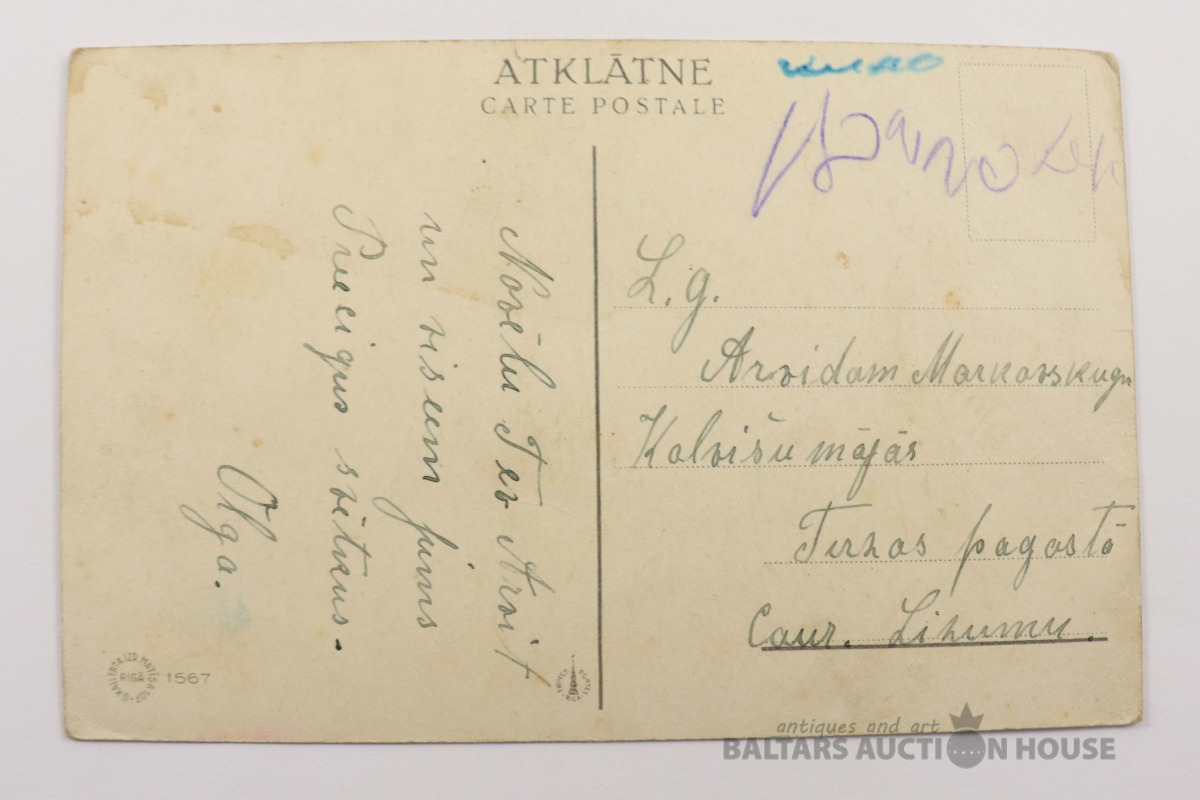 ATKLĀTNE
CARTE POSTALE
Novēlu Tev Arvit
un visiem jums
Priecigus svētkus.
Olga.
L. g.
Arvidam Markovskugu
Kalvišu mājās
Tirzas pagastā
Caur. Lizumu.
RIGA
1567
antiques and art
BALTARS AUCTION HOUSE